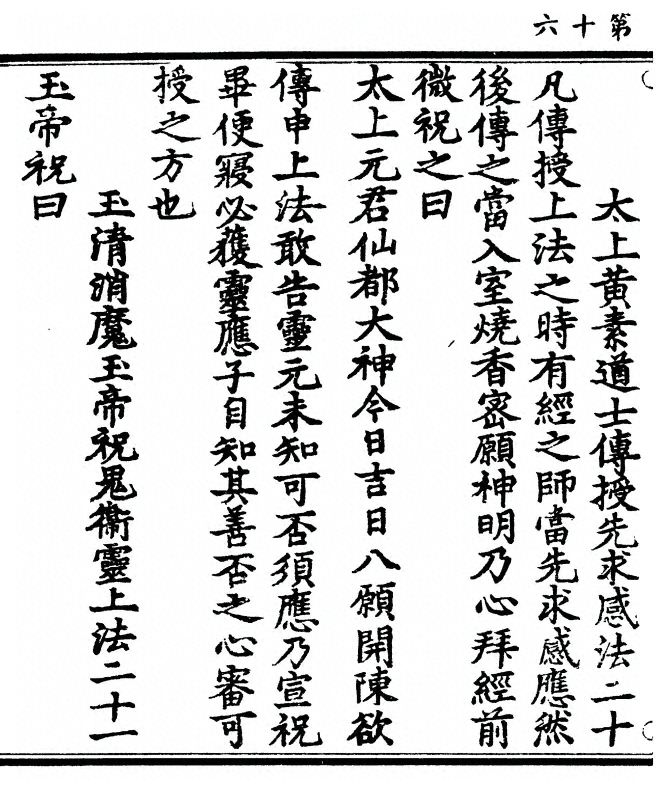 第十六
太上黃素道士傳授先求感法二十
凡傳授上法之時有經之師當先求感應然
後傳之當入室燒香密願神明乃心拜經前
微祝之曰
太上元君仙都大神今日吉日八願開陳欲
傳申上法敢告靈元未知可否須應乃宣祝
畢便寢必獲靈應子自知其善否之心審可
授之方也
玉清消魔玉帝祝鬼衛靈上法二十一
玉帝祝曰